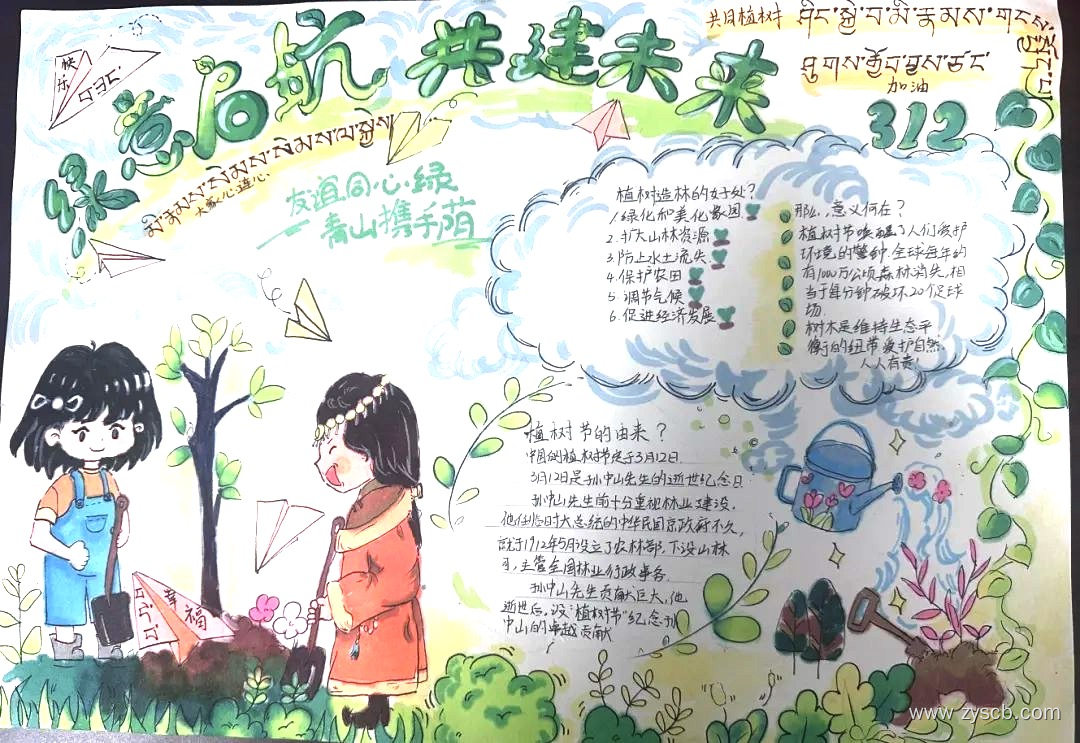 绿意启航 共建未来
快乐
共同植树
加油
312
大家心连心
友谊同心绿
青山携手荫
植树造林的好处?
1.绿化和美化家园
2.扩大山林资源
3.防止水土流失
4.保护农田
5.调节气候
6.促进经济发展
那么,意义何在?
植树节唤醒了人们爱护
环境的警钟.全球每年约
有1000万公顷森林消失,相
当于每分钟破坏20个足球
场.
树木是维持生态平
衡的纽节爱护自然,
人人有责!
植树节的由来?
中国的植树节定于3月12日.
3月12日是孙中山先生的逝世纪念日
孙中山先生前十分重视林业建设,
他任临时大总统的中华民国京政府不久,
就于1912年5月设立了农林部,下设山林
司,主管全国林业行政事务.
孙中山先生贡献巨大,他
逝世后,设"植树节"纪念孙
中山的卓越贡献
幸福
www.zyscb.com